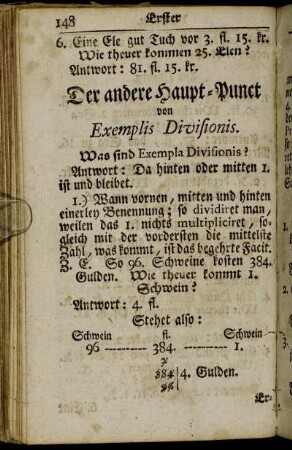 148 Erster
6. Eine Ele gut Tuch vor 3. fl. 15. kr.
Wie theuer kommen 25. Elen?
Antwort: 81. fl. 15. kr.
Der andere Haupt-Punct
von
Exemplis Divisionis.
Was sind Exempla Divisionis?
Antwort: Da hinten oder mitten 1.
ist und bleibet.
1.) Wann vornen, mitten und hinten
einerley Benennung; so dividiret man,
weilen das 1. nichts multipliciret, so-
gleich mit der vordersten die mittelste
Zahl, was kommt, ist das begehrte Facit.
Z. E. So 96. Schweine kosten 384.
Gulden. Wie theuer kommt 1.
Schwein?
Antwort: 4. fl.
Stehet also:
Schwein fl. Schwein
96 ---------- 384. ---------- 1.
384 | 4. Gulden.
Er-